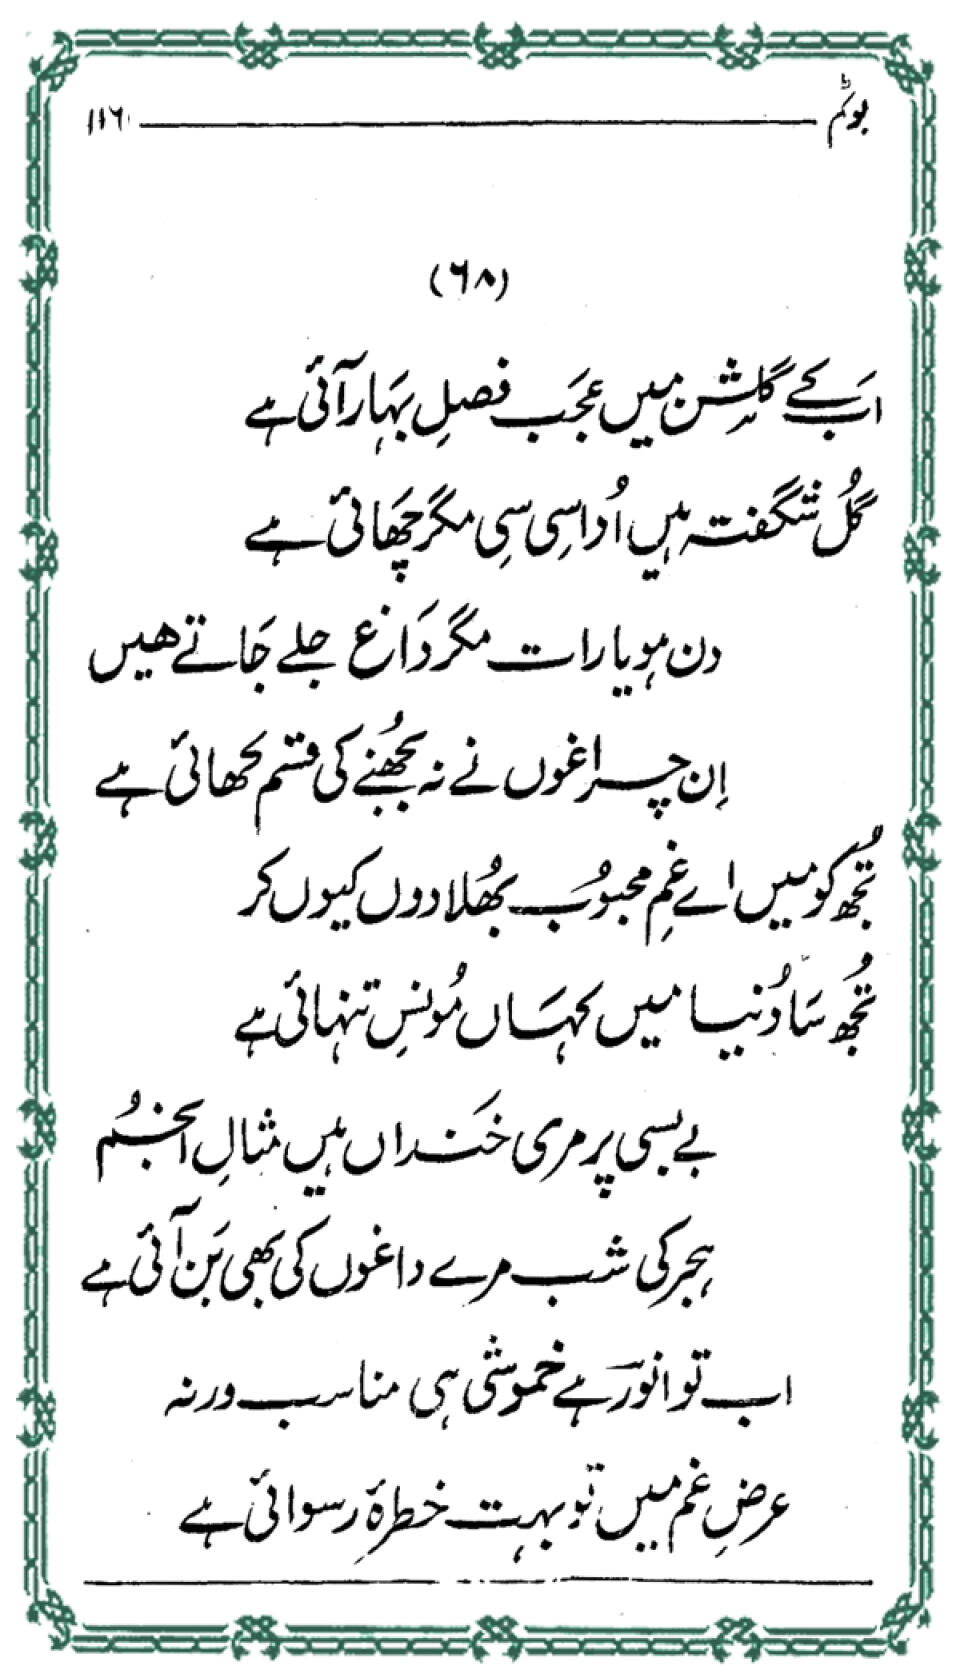 (۶۸)
اب کے گلشن میں عجب فصلِ بہار آئی ہے
گُل شگفتہ ہیں اُداسی سی مگر چھائی ہے
دن ہو یا رات مگر داغ جلے جاتے ھیں
اِن چراغوں نے نہ بُجھنے کی قسم کھائی ہے
تُجھ کو میں اے غمِ محبُوب بھُلا دوں کیوں کر
تُجھ سا دُنیا میں کہاں مُونسِ تنہائی ہے
بے بسی پر مری خنداں ہیں مثالِ انجُم
ہجر کی شب مرے داغوں کی بھی بَن آئی ہے
اب تو انورؔ ہے خموشی ہی مناسب ورنہ
عرضِ غم میں تو بہت خطرۂ رسوائی ہے